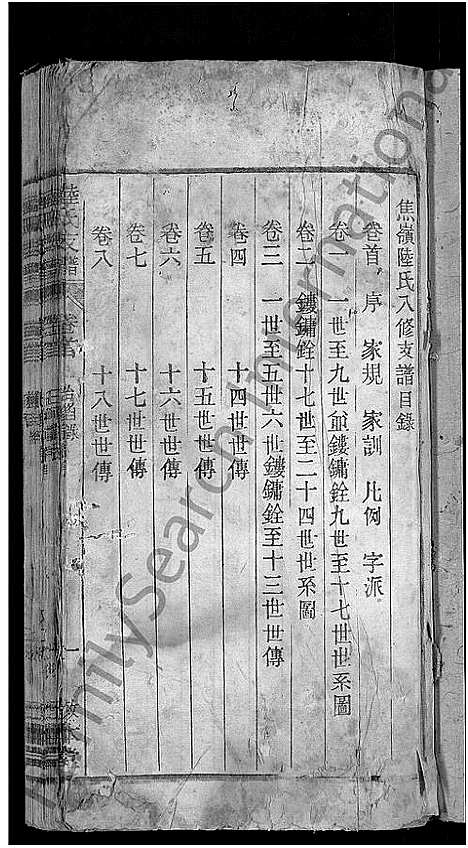 焦嶺陸氏八修支譜目錄
卷首 序 家規 家訓 凡例 字派
卷一 一世至九世爺鏤鏞銓九世至十七世世系圖
卷二 鏤鏞銓十七世至二十四世世系圖
卷三 一世至五世六世鏤鏞銓至十三世世傳
卷四 十四世世傳
卷五 十五世世傳
卷六 十六世世傳
卷七 十七世世傳
卷八 十八世世傳
陸氏支譜 卷首 目錄 一
FamilySearch International